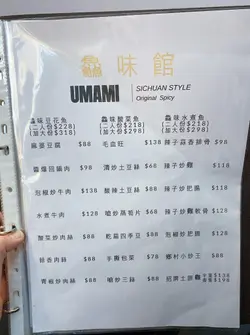 鱻味館
UMAMI
SICHUAN STYLE
Original Spicy
鱻味豆花魚
(二人份$228)
(加大份$318)
鱻味酸菜魚
(二人份$218)
(加大份$298)
鱻味水煮魚
(二人份$218)
(加大份$298)
麻婆豆腐 $88
毛血旺 $138
辣子蒜香排骨 $98
回鍋肉 $98
清炒土豆絲 $88
辣子炒蝦 $138
泡椒炒牛肉 $138
酸辣土豆絲 $88
辣子炒肥腸 $138
水煮牛肉 $128
嗆炒蓮藕片 $68
辣子炒雞軟骨 $128
魚香肉絲 $88
乾煸四季豆 $88
泡椒炒肥腸 $138
蒜香肉絲 $88
手撕包菜 $78
鄉村小炒王 $88
青椒炒肉絲 $88
嗆炒三絲 $88
招牌土班魚